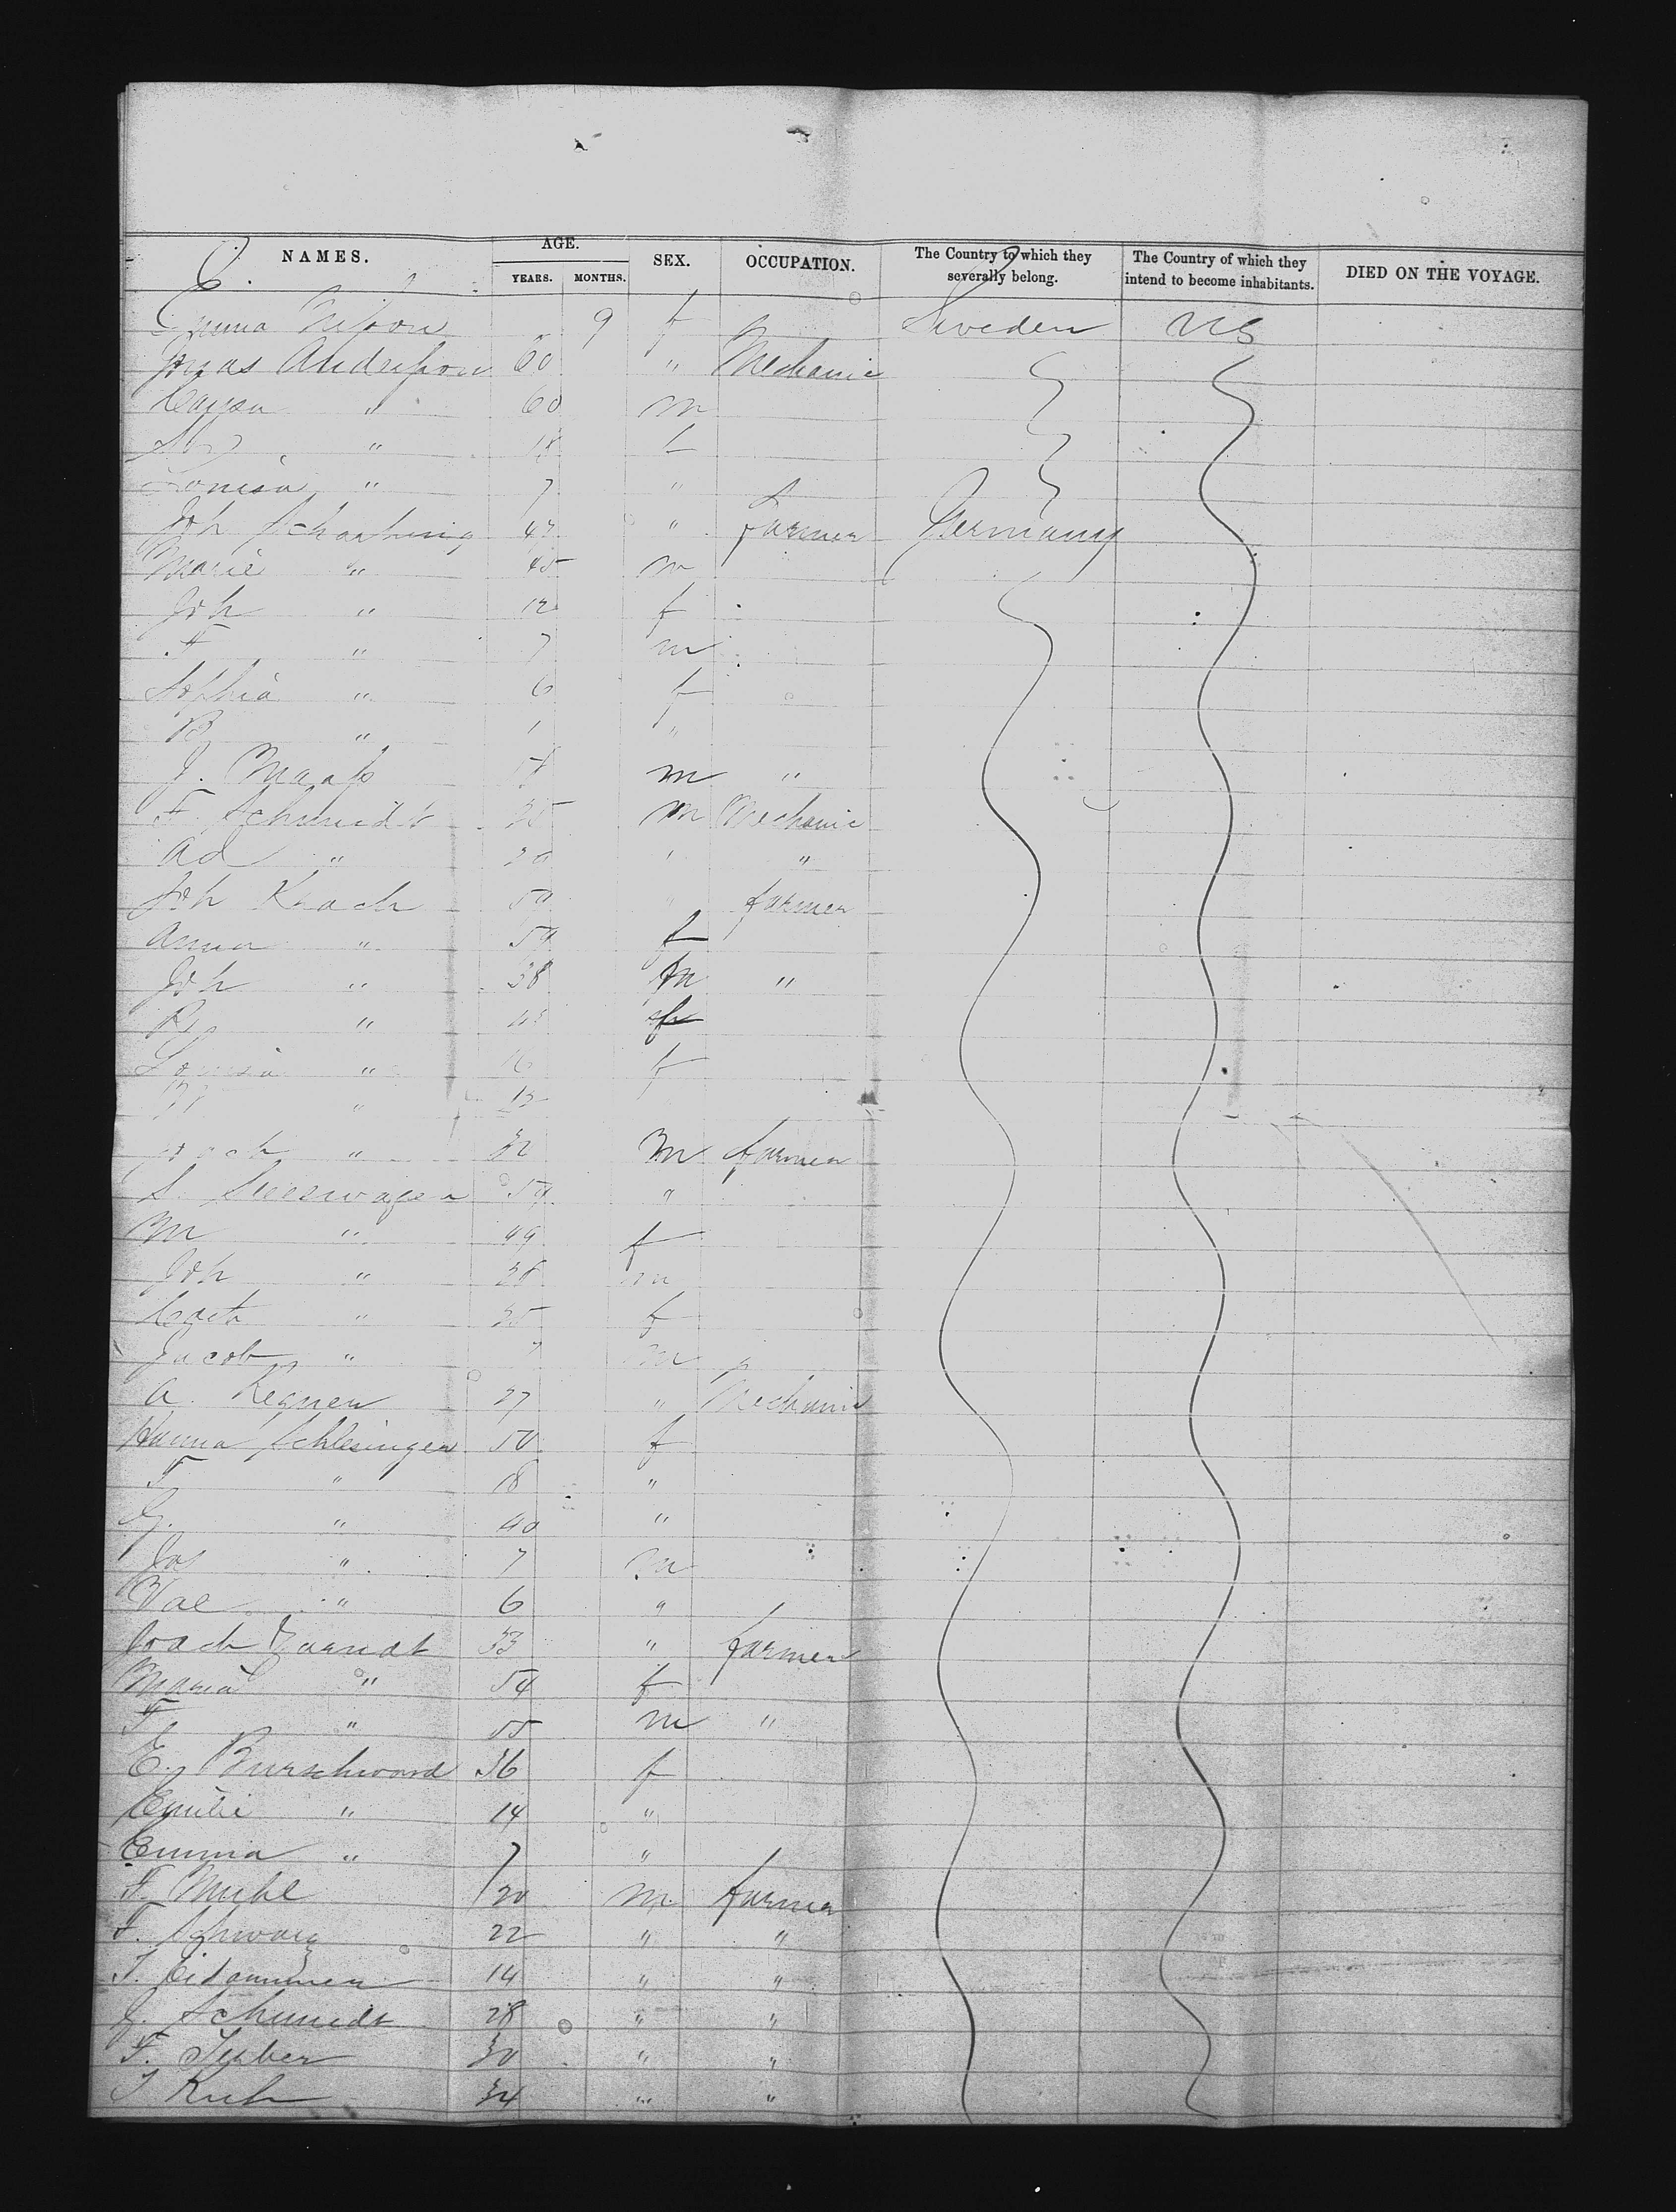 NAMES. AGE. YEARS. MONTHS. SEX. OCCUPATION. The Country to which they severally belong. The Country of which they intend to become inhabitants. DIED ON THE VOYAGE.
Emma Nilsson 9 f Sweden US
Jonas Andersson 60 " Mechanic
Cajsa " 60 m
" 18 f
Louisa " 7 "
Joh " Farmer Germany
Marie " 45 m
Joh " 12 f
F " 7 m
Sophia " 6 f
B " 1 "
J. Maass m "
F. Schmidt 25 m Mechanic
Ad " 20 " "
Joh Knach 50 " farmer
Anna " 54 f
Joh " 38 m "
" f
Louisa " 16 f
" 12
Joach " 32 m farmer
S. 54 "
M " 49 f
Joh " 28 m
" 35 f
Jacob " 7 m
A. Regnen 27 " Mechanic
Hanna Schlesinger 50 f
F " 18 "
G. " 40 "
Jos " 7 m
Val " 6 "
Joach 53 " farmer
Maria " 54 f
F " 55 m "
E. Burschward 36 f
Emilie " 14 "
Emma " 7 "
F. Muhl 20 m farmer
F. Schwarz 22 " "
14 " "
J. Schmidt 28 " "
F. 30 " "
34 " "